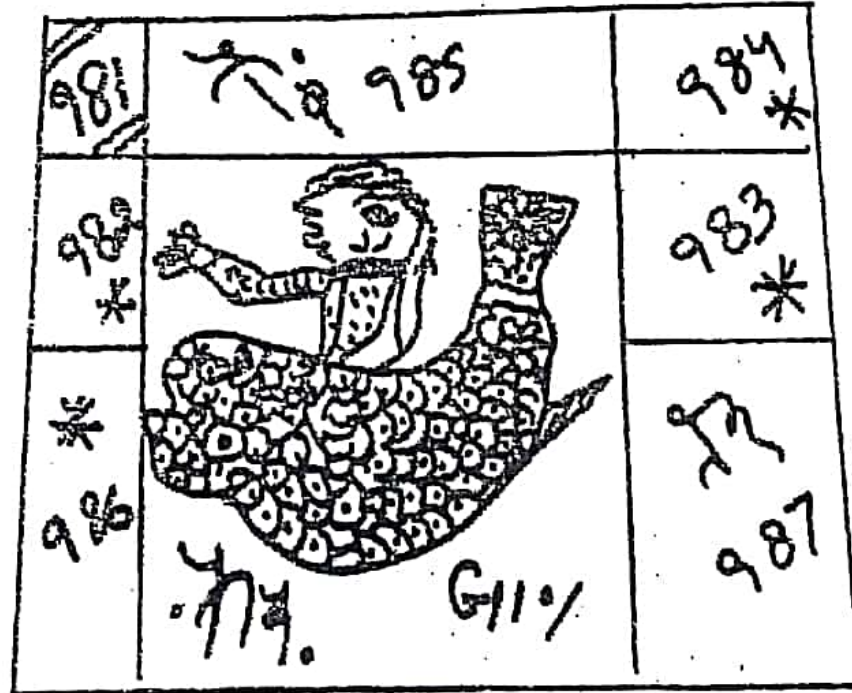 981
985
984
982
983
986
987
G11%